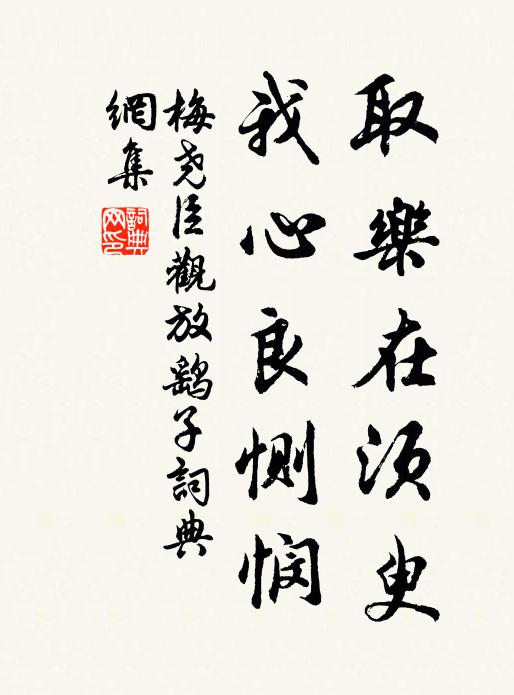 取樂在須臾
我心良惻憫
梅堯臣觀放鷂子詞典
網集
詞典網印